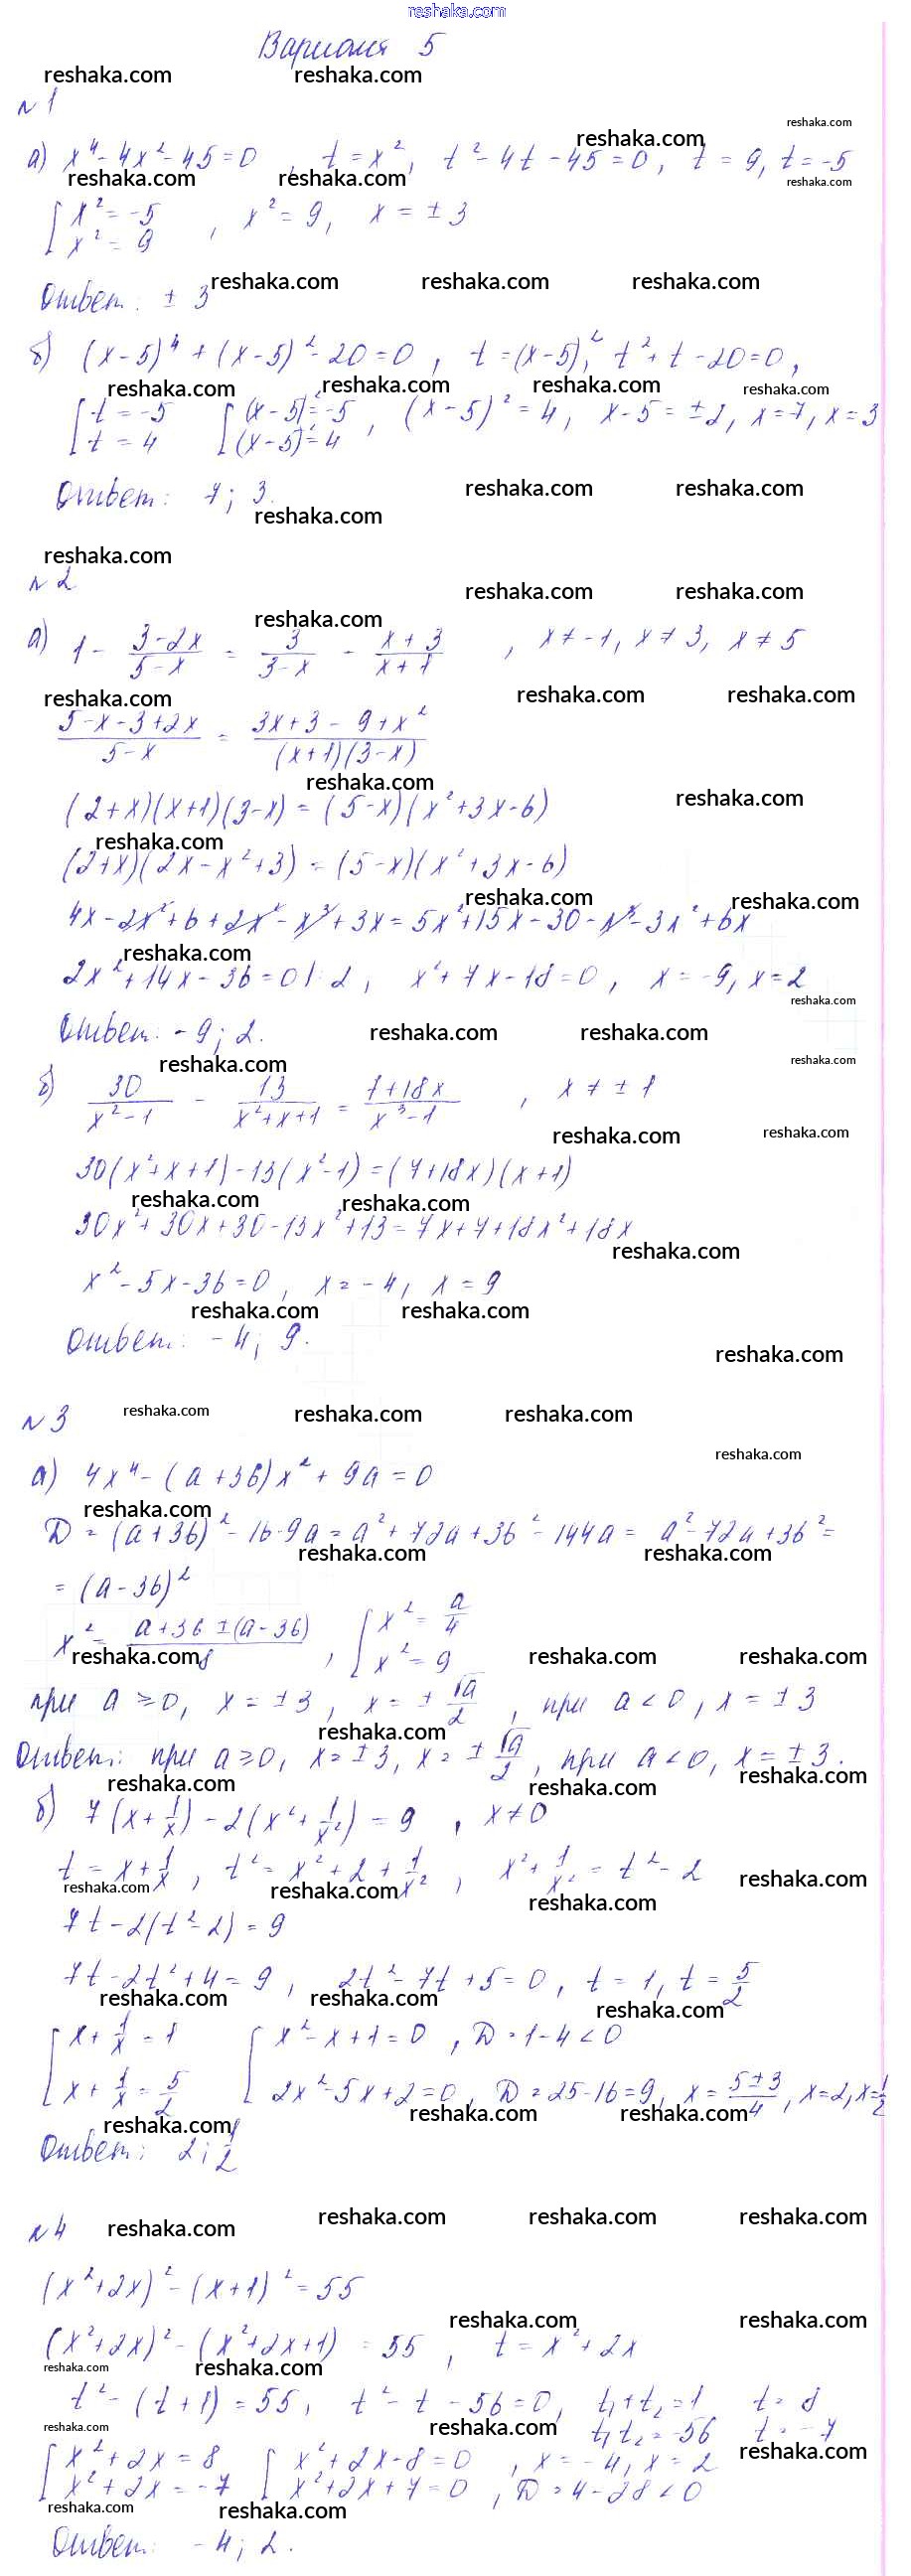 reshaka.com
Вариант 5
reshaka.com reshaka.com
№1
reshaka.com
reshaka.com
а) x⁴ - 4x² - 45 = 0, t = x², t² - 4t - 45 = 0, t = 9, t = -5
reshaka.com reshaka.com reshaka.com
[ x² = -5
[ x² = 9 , x² = 9, x = ± 3
reshaka.com reshaka.com reshaka.com
Ответ: ± 3
б) (x-5)⁴ + (x-5)² - 20 = 0, t = (x-5)², t² + t - 20 = 0,
reshaka.com reshaka.com reshaka.com reshaka.com
[ t = -5 [ (x-5)² = -5
[ t = 4 [ (x-5)² = 4 , (x-5)² = 4, x-5 = ±2, x=7, x=3
Ответ: 7; 3.
reshaka.com reshaka.com
reshaka.com
reshaka.com
№2
reshaka.com reshaka.com
reshaka.com
а) 1 - (3-2x)/(5-x) = 3/(3-x) - (x+3)/(x+1) , x ≠ -1, x ≠ 3, x ≠ 5
reshaka.com reshaka.com reshaka.com
(5-x-3+2x)/(5-x) = (3x+3-9+x²)/((x+1)(3-x))
reshaka.com
reshaka.com
(2+x)(x+1)(3-x) = (5-x)(x²+3x-6)
reshaka.com
(2+x)(2x-x²+3) = (5-x)(x²+3x-6)
reshaka.com reshaka.com
4x-2x²+6+2x²-x³+3x = 5x²+15x-30-x³-3x²+6x
reshaka.com
2x²+14x-36=0 |:2, x²+7x-18=0, x=-9, x=2
reshaka.com
Ответ: -9; 2.
reshaka.com reshaka.com
reshaka.com reshaka.com
б) 30/(x²-1) - 13/(x²+x+1) = (7+18x)/(x³-1) , x ≠ ±1
reshaka.com reshaka.com
30(x²+x+1)-13(x²-1)=(7+18x)(x+1)
reshaka.com reshaka.com
30x²+30x+30-13x²+13=7x+7+18x²+18x
reshaka.com
x²-5x-36=0, x=-4, x=9
reshaka.com reshaka.com
Ответ: -4; 9.
reshaka.com
№3
reshaka.com reshaka.com reshaka.com
reshaka.com
а) 4x⁴-(a+36)x²+9a=0
reshaka.com
D = (a+36)²-16·9a = a²+72a+36²-144a = a²-72a+36² =
reshaka.com reshaka.com
= (a-36)²
x² = (a+36±(a-36))/8 , [ x² = a/4
[ x² = 9
reshaka.com reshaka.com reshaka.com
при a ≥ 0, x = ±3, x = ± √a/2 , при a < 0, x = ±3
reshaka.com
Ответ: при a ≥ 0, x = ±3, x = ± √a/2, при a < 0, x = ±3.
reshaka.com reshaka.com reshaka.com
б) 7(x+1/x)-2(x²+1/x²)=9 , x≠0
t = x+1/x, t² = x²+2+1/x² , x²+1/x² = t²-2
reshaka.com reshaka.com reshaka.com reshaka.com
7t-2(t²-2)=9
7t-2t²+4=9, 2t²-7t+5=0, t=1, t=5/2
reshaka.com reshaka.com reshaka.com
[ x+1/x=1 [ x²-x+1=0, D=1-4<0
[ x+1/x=5/2 [ 2x²-5x+2=0, D=25-16=9, x=(5±3)/4, x=2, x=1/2
reshaka.com reshaka.com reshaka.com
Ответ: 2; 1/2
reshaka.com reshaka.com reshaka.com
№4 reshaka.com
(x²+2x)²-(x+1)²=55
reshaka.com reshaka.com
(x²+2x)²-(x²+2x+1)=55, t=x²+2x
reshaka.com reshaka.com
t²-(t+1)=55, t²-t-56=0, t₁+t₂=1 t=8
t₁t₂=-56 t=-7
reshaka.com reshaka.com reshaka.com
[ x²+2x=8 [ x²+2x-8=0, x=-4, x=2
[ x²+2x=-7 [ x²+2x+7=0, D=4-28<0
reshaka.com reshaka.com
Ответ: -4; 2.